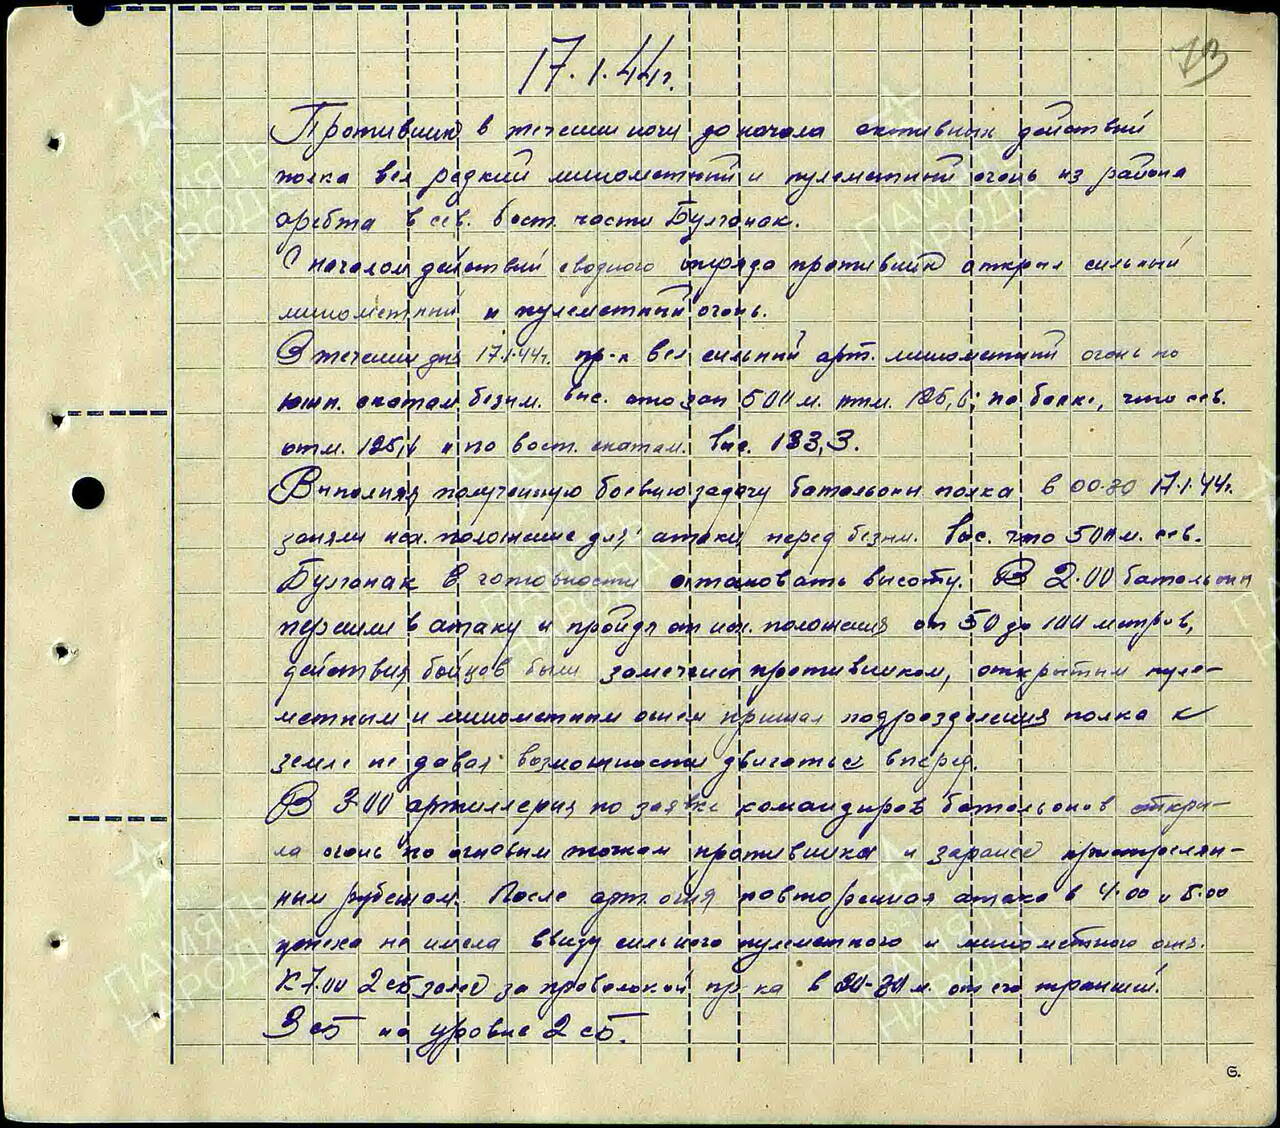 73
17.1.44г.
Противник в течении ночи до начала активных действий
полка вел редкий минометный и пулеметный огонь из района
хребта в сев. вост. части Булганак.
С началом действий сводного отряда противник открыл сильный
минометный и пулеметный огонь.
В течении дня 17.1.44г. пр-к вел сильный арт. минометный огонь по
южн. скатам безым. выс. что зап 500 м. отм. 125,6; по балке, что сев.
отм. 125,6 и по вост. скатам. выс. 133,3.
Выполняя полученную боевую задачу батальоны полка в 00-30 17.1.44г.
заняли исх. положение для атаки перед безым. выс. что 500 м. сев.
Булганак в готовности атаковать высоту. В 2.00 батальоны
перешли в атаку и пройдя от исх. положения от 50 до 100 метров,
действия бойцов были замечены противником, открытым пуле-
метным и минометным огнем прижал подразделения полка к
земле не давая возможности двигаться вперед.
В 3-00 артиллерия по заявке командиров батальонов откры-
ла огонь по огневым точкам противника и заранее пристрелян-
ным рубежам. После арт. огня повторенная атака в 4.00 и 5.00
успеха не имела ввиду сильного пулеметного и минометного огня.
К 7.00 2 сб залег за проволокой пр-ка в 20-30 м. от его траншей.
3 сб на уровне 2 сб.
ПАМЯТЬ
НАРОДА